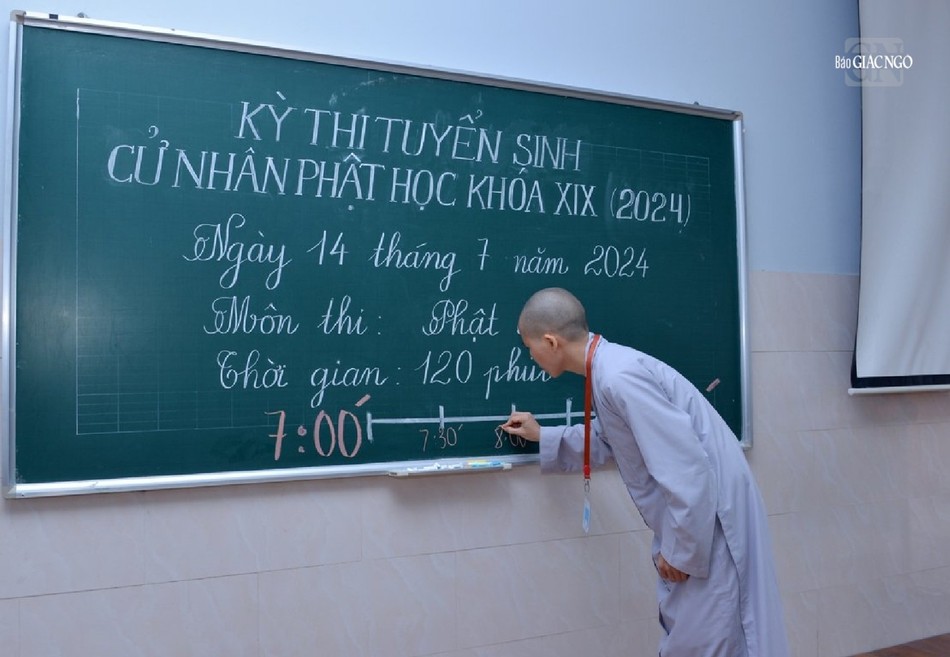 Báo GIÁC NGỘ
KỲ THI TUYỂN SINH
CỬ NHÂN PHẬT HỌC KHÓA XIX (2024)
Ngày 14 tháng 7 năm 2024
Môn thi : Phật
Thời gian : 120 phút
7:00´
7:30´ 8:00